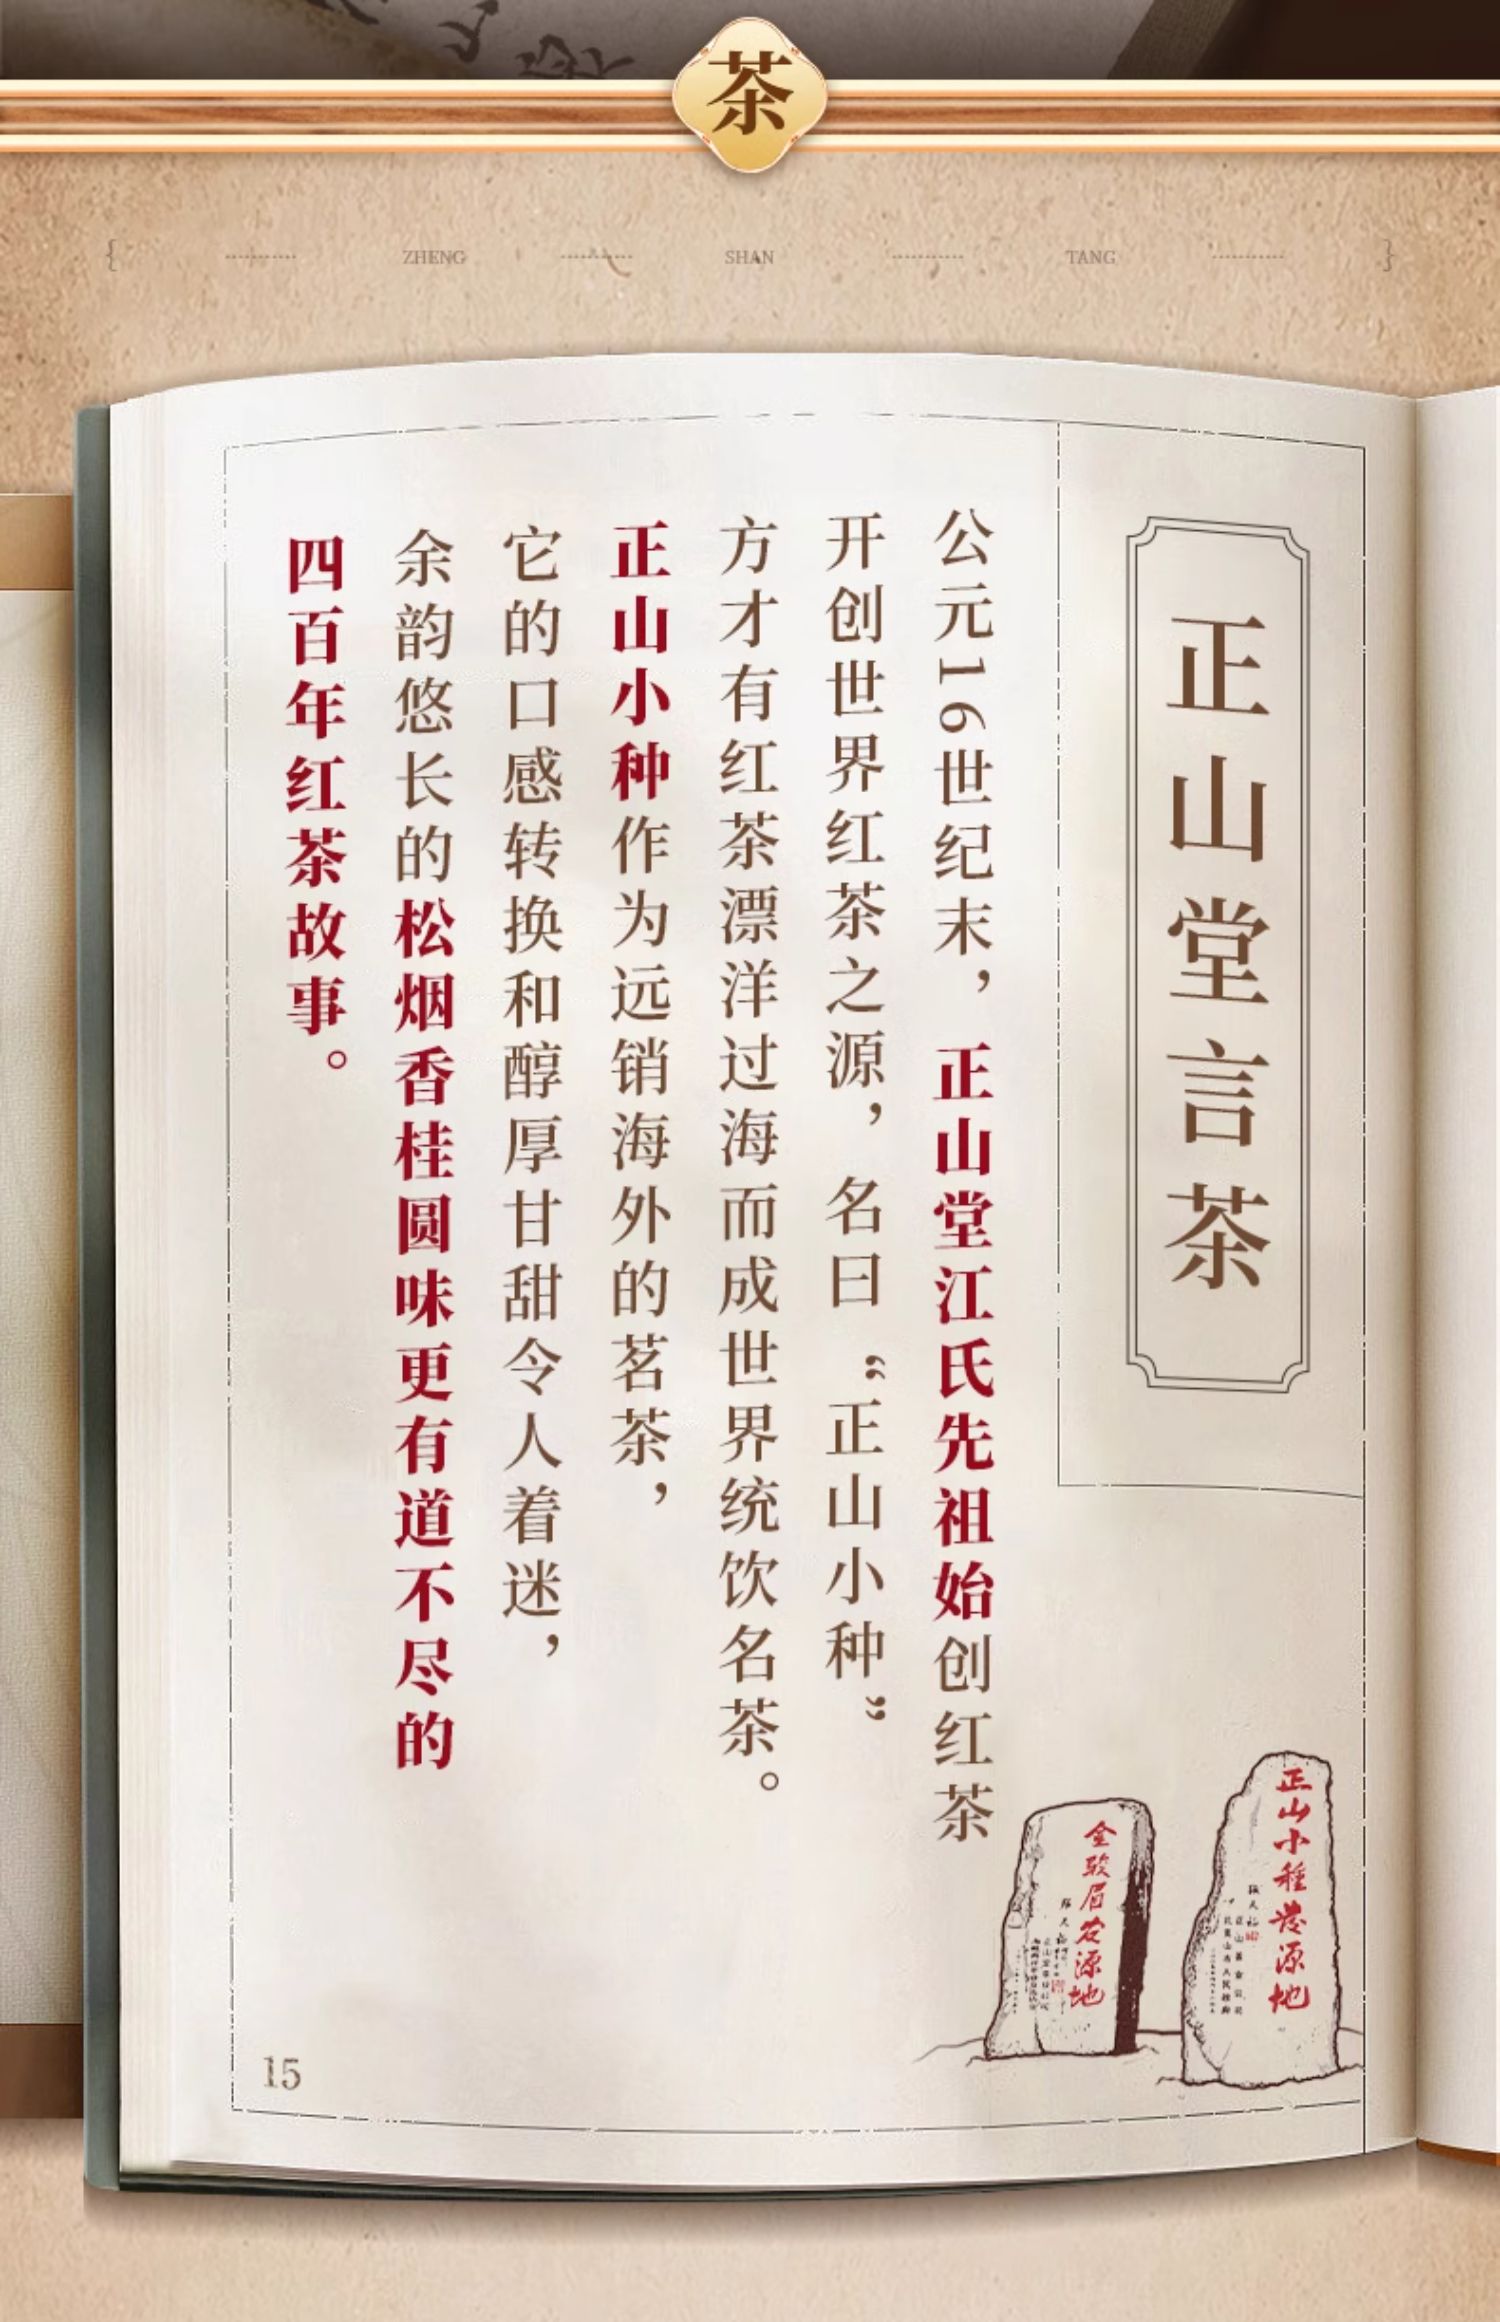 茶
{ ZHENG SHAN TANG }
正山堂言茶
公元16世纪末，正山堂江氏先祖始创红茶
开创世界红茶之源，名曰“正山小种”
方才有红茶漂洋过海而成世界统饮名茶。
正山小种作为远销海外的茗茶，
它的口感转换和醇厚甘甜令人着迷，
余韵悠长的松烟香桂圆味更有道不尽的
四百年红茶故事。
正山小種发源地
金骏眉发源地
15